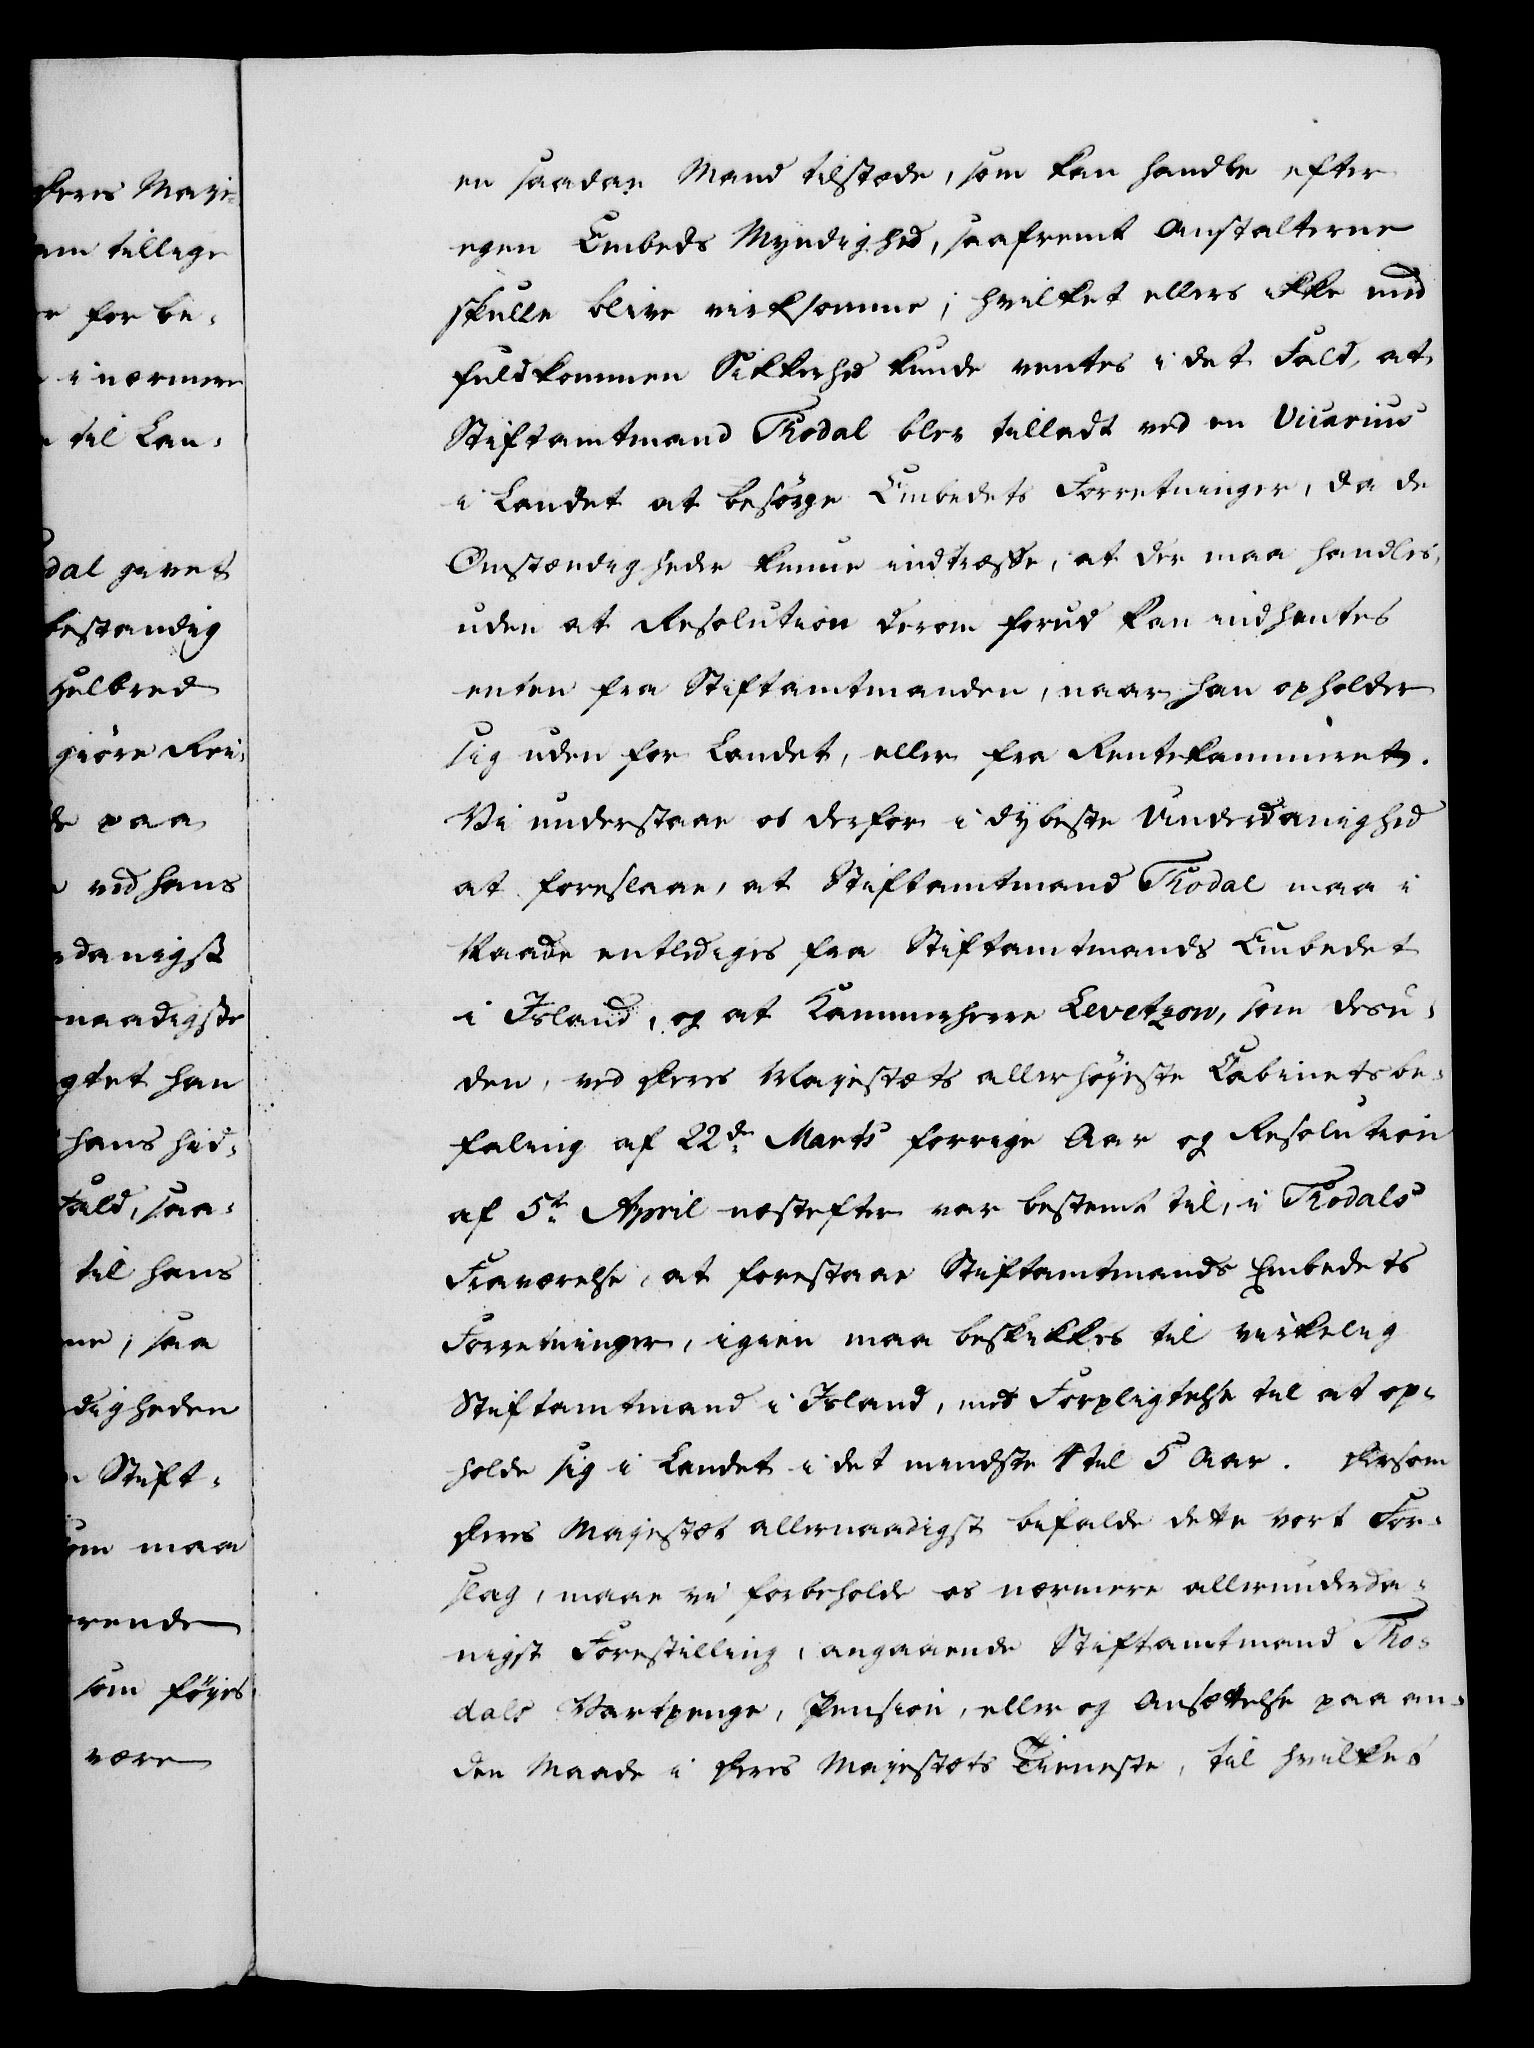 Deres Maje-
am tillige
for be-
i nærmere
til Lan-
dal givet
bestandig
Helbred
giöre Rei-
de paa
ved hans
danigst
naadigste
gtet han
hans hid-
Fald, saa-
til hans
ne, saa
digheden
Stift-
om maa
rende
som föyes
være
en saadan Mand tilstæde, som kan handle efter
egen Embeds Myndighed, saafremt Anstalterne
skulle blive virksomme; hvilket ellers ikke med
fuldkommen Sikkerhed kunde ventes i det Fald, at
Stiftamtmand Thodal blev tilladt ved en Vicarius
i Landet at besörge Embedets Forretninger, da de
Omstændigheder kunne indtræffe, at der maa handles,
uden at Resolution derom forud kan indhentes
enten fra Stiftamtmanden, naar han opholder
sig uden for Landet, eller fra Rentekammeret.
Vi understaae os derfor i dybeste Underdanighed
at foreslaae, at Stiftamtmand Thodal maa i
Naade entlediges fra Stiftamtmands Embedet
i Island, og at Kammerherre Levetzow, som desu-
den, ved Deres Majestæts allerhöyeste Cabinetsbe-
faling af 22de Marts forrige Aar og Resolution
af 5te April næstefter var bestemt til, i Thodals
Fraværelse, at forestaae Stiftamtmands Embedets
Forretninger, igien maa beskikkes til virkelig
Stiftamtmand i Island, med Forpligtelse til at op-
holde sig i Landet i det mindste 4 til 5 Aar. Dersom
Deres Majestæt allernaadigst bifalde dette vort For-
slag, maae vi forbeholde os nærmere allerunderda-
nigst Forestilling, angaaende Stiftamtmand Tho-
dals Vartpenge, Pension, eller og Ansættelse paa an-
den Maade i Deres Majestæts Tieneste, til hvilket